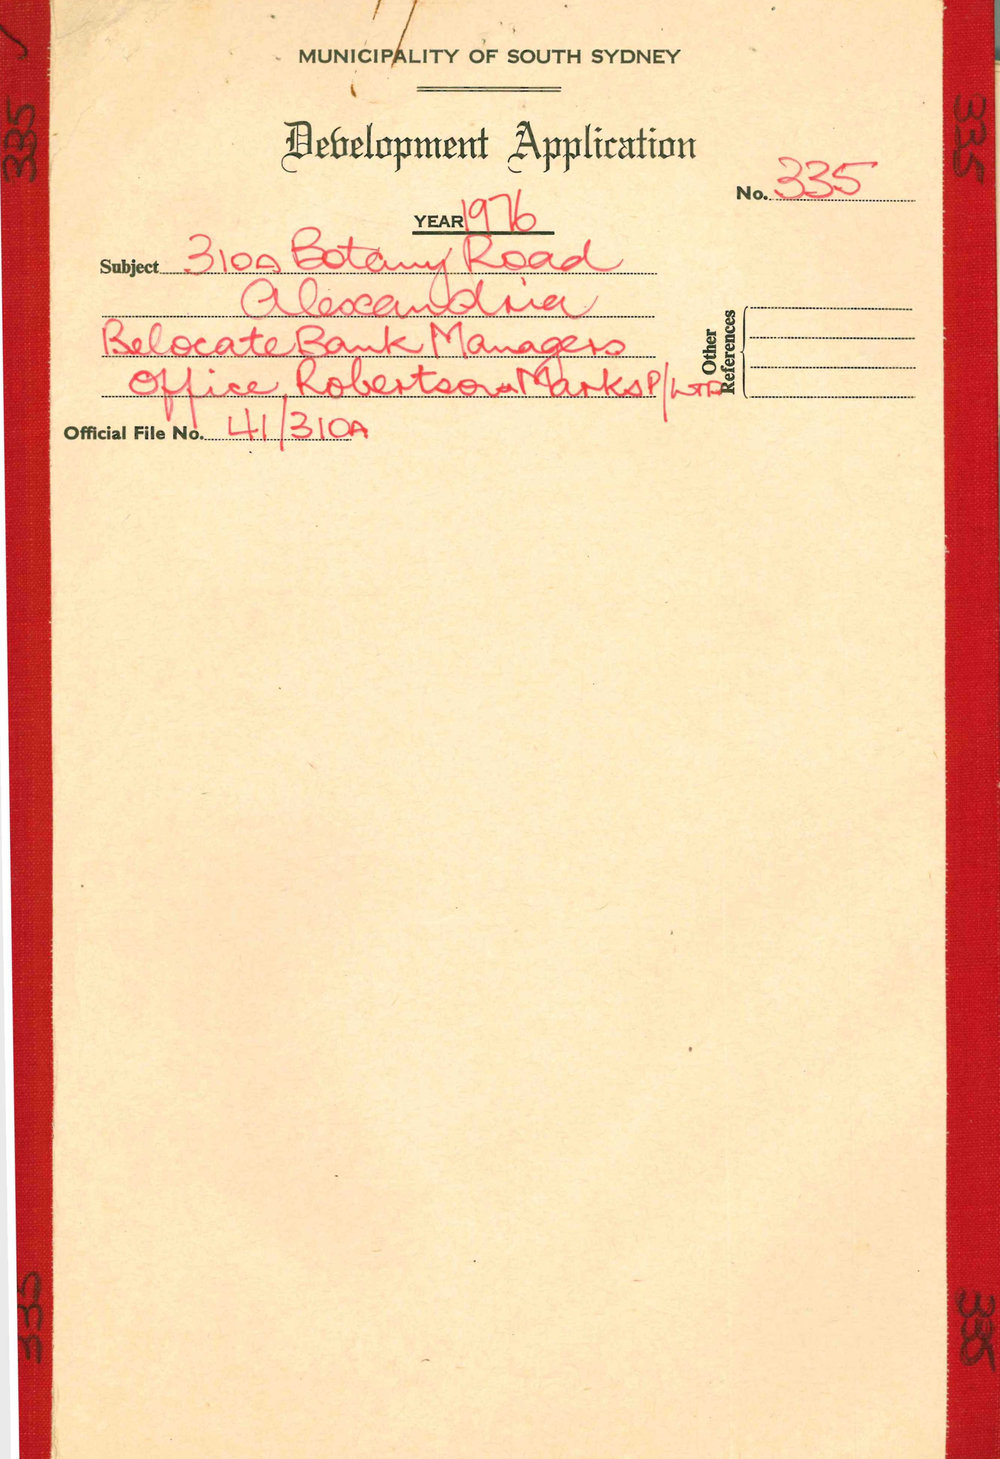 MUNICIPALITY OF SOUTH SYDNEY
Development Application
No. 335
YEAR 1976
Subject 310A Botany Road
Alexandria
Relocate Bank Managers
Office, Robertson & Marks P/LTD
Other References
Official File No. 41/310A
335
335
335
335